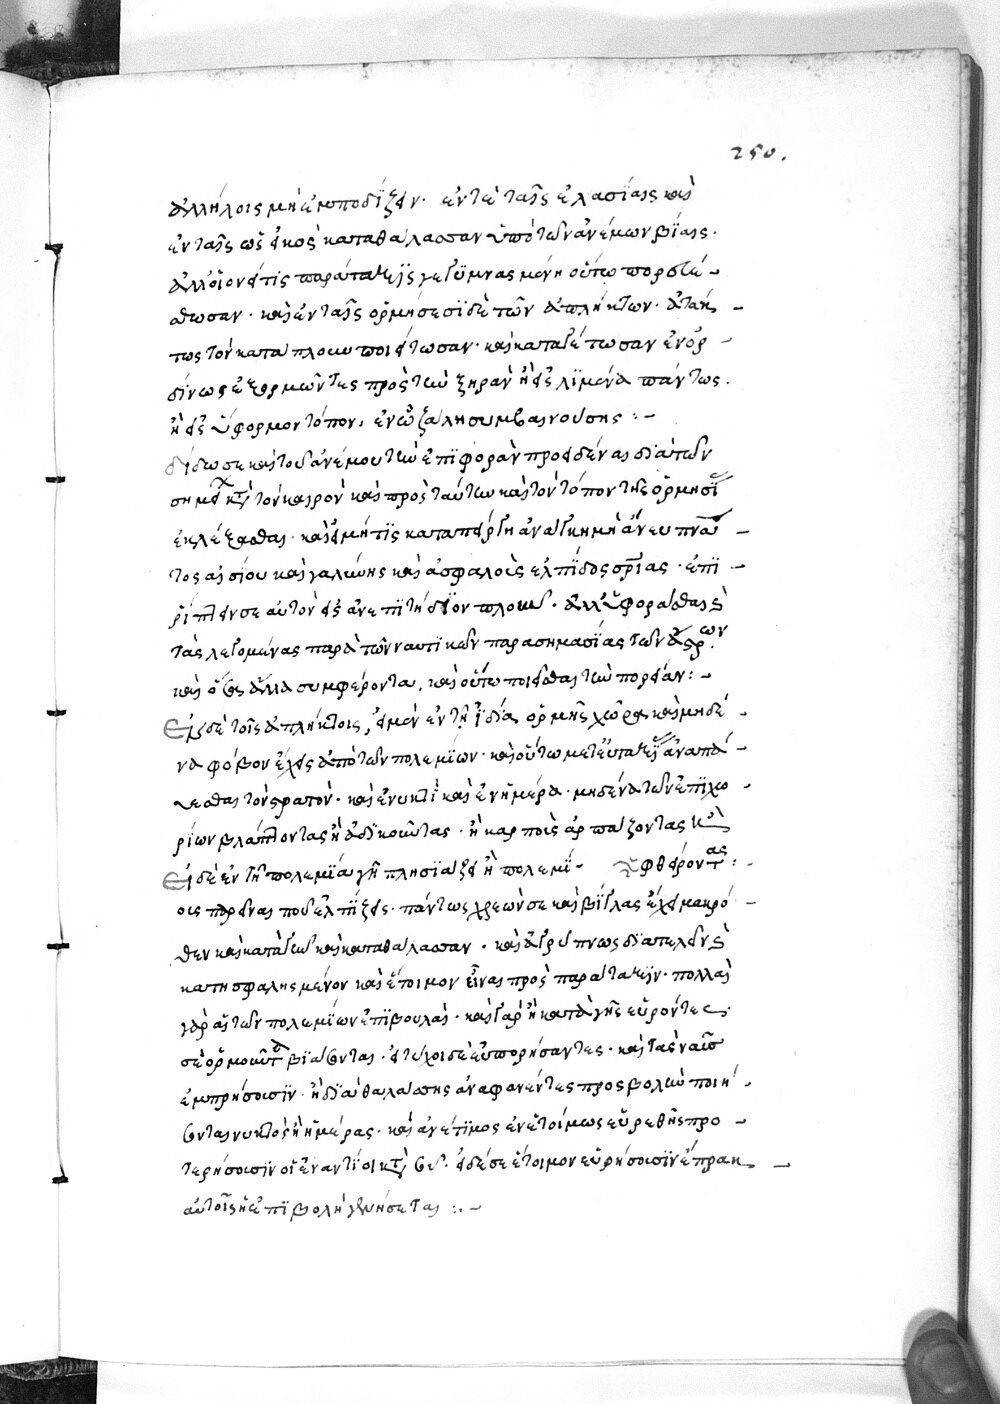 250.
ἀλλήλοις μὴ ἐμποδίζειν· ἔν τε ταῖς ἐλασίαις καὶ
ἐν ταῖς ὡς εἰκὸς κατὰ θάλασσαν ὑπὸ τῶν ἀνέμων βίαις·
ἀλλ' οἷον εἴ τις παράταξις γεγυμνασμένη οὕτω πορευέ-
σθωσαν· καὶ ἐν ταῖς ὁρμήσεσι δὲ τῶν ἀπλήκτων· ἀτάκ-
τως τὸν κατάπλουν ποιείτωσαν· καὶ καταγέτωσαν ἐν ὀρ-
δίνως ἐξορμῶντες πρὸς τὴν ξηρὰν ἢ εἰς λιμένα πάντως·
ἢ εἰς ὕφορμον τόπον, ἐν ᾧ ζάλη συμβαινούσης :-
δίδωσε καὶ τοῦ ἀνέμου τὴν ἐπιφορὰν προειδέναι διὰ τῶν
σημεί κατὰ τὸν καιρὸν καὶ πρὸς ταύτην καὶ τὸν τόπον τῆς ὁρμήσε
ἐκλέξασθαι· καὶ εἰ μή τις κατεπείγη ἀνάγκη μὴ ἄνευ πνεύμα-
τος αἰσίου καὶ γαλήνης καὶ ἀσφαλοῦς ἐλπίδος σωτηρίας· ἐπι-
ρίπτειν σεαυτὸν εἰς ἀνεπιτήδειον πλοῦν· ἀλλ' ὑφορᾶσθαι καὶ
τὰς λεγομένας παρὰ τῶν ναυτικῶν παρασημασίας τῶν ἀστέρων
καὶ ὅσα ἄλλα συμφέροντα, καὶ οὕτω ποιεῖσθαι τὴν πορείαν :-
Εἰς δὲ τοῖς ἀπλήκτοις, εἰ μὲν ἐν τῇ ἰδίᾳ ὁρμῇς χώρᾳ καὶ μηδέ-
να φόβον ἔχεις ἀπὸ τῶν πολεμίων· καὶ οὕτω μετ' εὐταξίας ἀναπαύ-
εσθαι τὸν στρατόν· καὶ ἐν νυκτὶ καὶ ἐν ἡμέρᾳ· μηδένα τῶν ἐπιχω-
ρίων βλάπτοντας ἢ ἀδικοῦντας· ἢ καρποὺς ἁρπάζοντας καὶ
Εἰ δὲ ἐν τῇ πολεμίᾳ γῇ πλησιάζει ἢ πολεμί- φθείροντας :-
οις παρεῖναί που ἐλπίζεις· πάντως χρεών σε καὶ βίγλας ἔχειν μακρό-
θεν καὶ κατὰ γῆν καὶ κατὰ θάλασσαν· καὶ ἀγρύπνως διατελεῖν καὶ
κατησφαλησμένον καὶ ἕτοιμον εἶναι πρὸς παράταξιν· πολλαὶ
γὰρ αἱ τῶν πολεμίων ἐπιβουλαί· καὶ γὰρ ἢ κατὰ γῆς εὑρόντες
σε ὁρμοῦντα βιάσονται· εἰ τύχοι σε εὐπορήσαντες· καὶ τὰς ναῦς
ἐμπρήσουσιν· ἢ διὰ θαλάσσης ἀναφανέντες προσβολὴν ποιή-
σονται νυκτὸς ἢ ἡμέρας· καὶ ἂν ἔτιμος ἐν ἑτοίμως εὑρεθῇς προ-
τερήσουσιν οἱ ἐναντίοι κατὰ σοῦ· εἰ δέ σε ἕτοιμον εὑρήσουσιν ἔπρακ-
αὐτοῖς ἡ ἐπιβολὴ γενήσεται :-